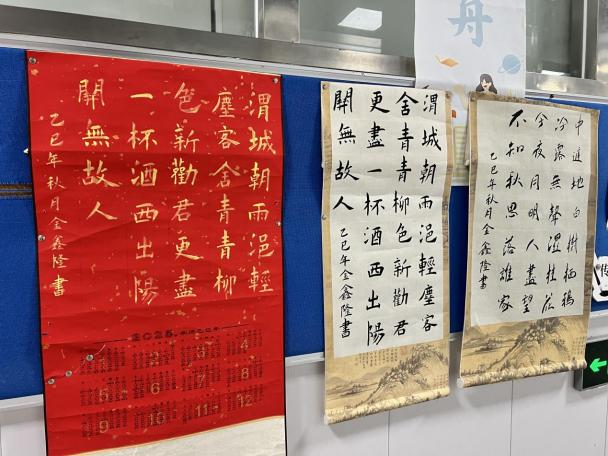 舟
渭城朝雨浥輕
塵客舍青青柳
色新勸君更盡
一杯酒西出陽
關無故人
乙巳年秋月金鑫隆書
2025
4
5
6
7
8
9
10
11
12
渭城朝雨浥輕塵客
舍青青柳色新勸君
更盡一杯酒西出陽
關無故人
乙巳年金鑫隆書
中庭地白樹棲鴉
冷露無聲濕桂花
今夜月明人盡望
不知秋思落誰家
乙巳年秋月金鑫隆書